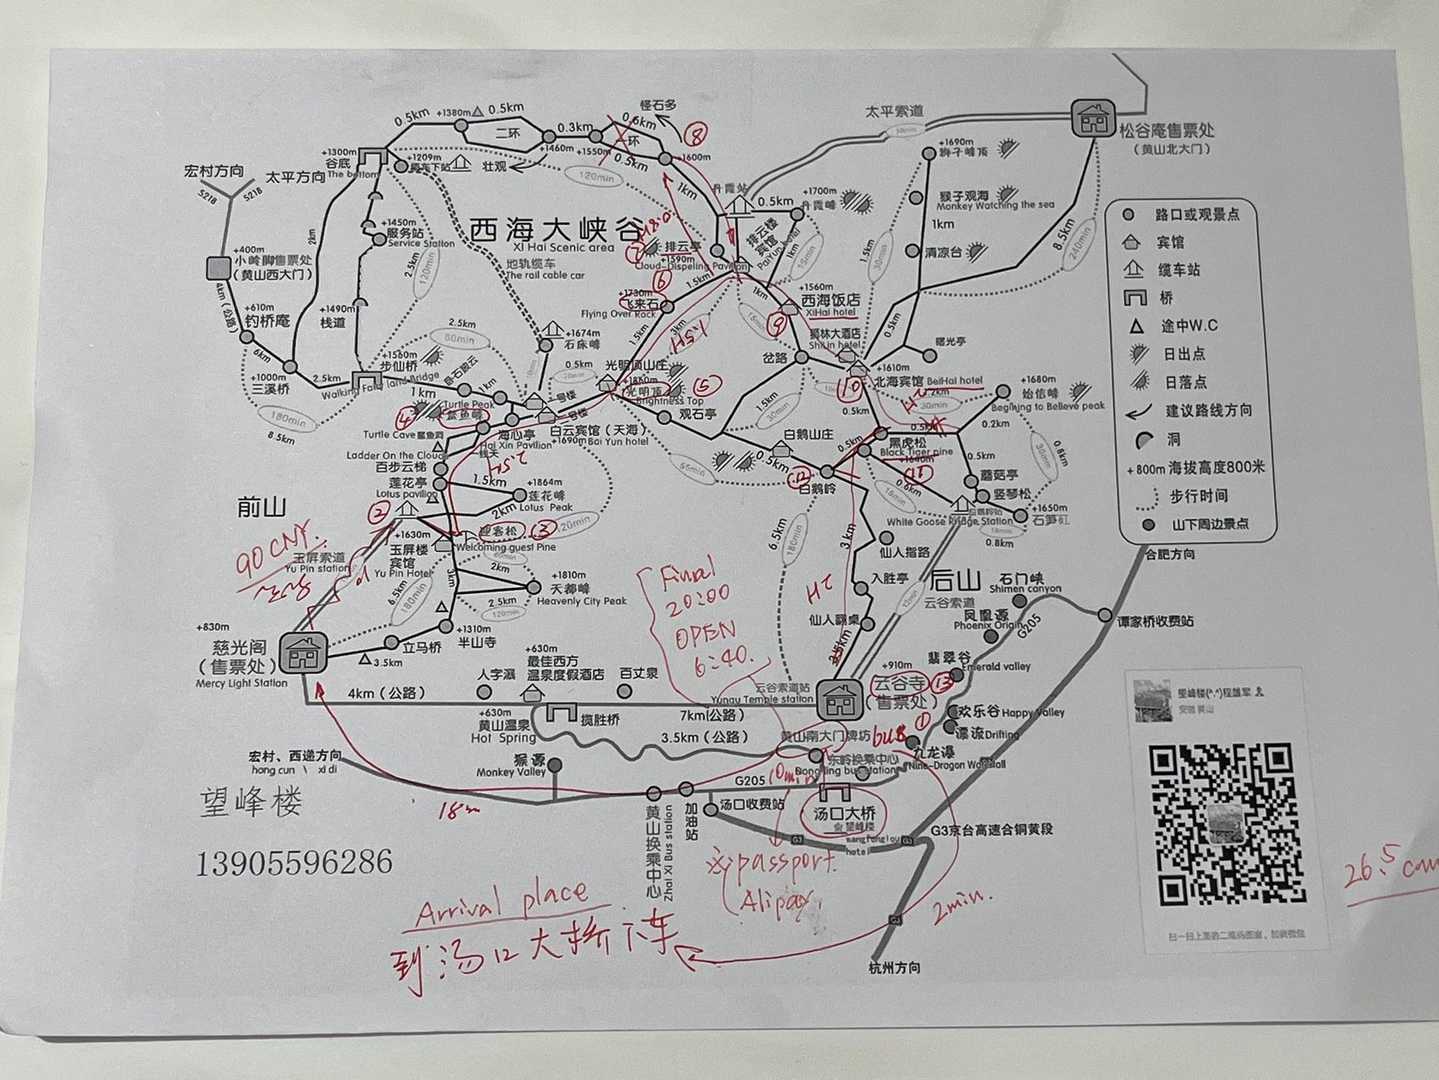 怪石多
0.5km
+1380m
0.5km
0.3km
0.6km
⑧
二环
一环
+1460m
+1550m
0.5km
+1600m
太平索道
松谷庵售票处
(黄山北大门)
+1300m
谷底
The bottom
+1209m
壮观
120min
1km
丹霞站
0.5km
+1700m
丹霞峰
+1690m
狮子峰顶
宏村方向
太平方向
S218
S218
猴子观海
Monkey Watching the sea
1km
清凉台
8.5km
240min
路口或观景点
宾馆
缆车站
桥
途中W.C
日出点
日落点
建议路线方向
洞
+800m 海拔高度800米
步行时间
山下周边景点
+1450m
服务站
Service Station
2km
2.5km
120min
西海大峡谷
Xi Hai Scenic area
地轨缆车
The rail cable car
⑦
排云亭
+1590m
Cloud-Dispeling Pavilion
排云楼
宾馆
PaiYun hotel
1km
15min
1.5km
30min
+400m
小岭脚售票处
(黄山西大门)
4km(公路)
+610m
钓桥庵
6km
+1000m
三溪桥
2.5km
180min
8.5km
+1490m
栈道
⑥
+1730m
飞来石
Flying Over Rock
1.5km
1km
+1560m
西海饭店
XiHai hotel
⑨
狮林大酒店
ShiLin hotel
0.5km
曙光亭
+1674m
石床峰
2.5km
60min
+1560m
步仙桥
Walking Fairy land Bridge
1.5km
3km
1.5H
15min
岔路
0.5km
+1610m
北海宾馆 BeiHai hotel
⑩
光明顶山庄
+1860m
光明顶
Brightness Top
⑤
0.5km
1km
1km
Turtle Peak
鳌鱼峰
④
Turtle Cave 鳌鱼洞
一号楼
二号楼
海心亭
Hai Xin Pavilion
白云宾馆(天海)
+1690m Bai Yun hotel
观石亭
1.5km
30min
0.5km
0.2km
30min
+1680m
始信峰
Beginning to Believe peak
0.2km
Ladder On the Cloud
一线天
百步云梯
白鹅山庄
0.5km
0.5km
黑虎松
Black Tiger pine
+1640m
⑪
0.5km
30min
0.8km
蘑菇亭
竖琴松
莲花亭
Lotus pavilion
2.5H
1.5km
+1864m
莲花峰
Lotus Peak
2km
55min
⑫
白鹅岭
0.6km
15min
White Goose Ridge Station
+1650m
石笋矼
0.8km
前山
②
迎客松
③
Welcoming guest Pine
90 CNY
玉屏索道
Yu Pin station
+1630m
玉屏楼
宾馆
Yu Pin Hotel
2km
6.5km
180min
3km
+1810m
天都峰
Heavenly City Peak
2.5km
120min
6.5km
180min
3km
仙人指路
入胜亭
2H
仙人翼桌
2.5km
后山
云谷索道
石门峡
Shimen canyon
凤凰源
Phoenix Origin
G205
谭家桥收费站
合肥方向
Final
20:00
OPEN
6:40.
+830m
慈光阁
(售票处)
Mercy Light Station
立马桥
3.5km
+1310m
半山寺
翡翠谷
Emerald valley
+910m
云谷寺
(售票处)
⑬
云谷索道站
Yungu Temple station
4km(公路)
人字瀑
+630m
最佳西方
温泉度假酒店
百丈泉
+630m
黄山温泉
Hot Spring
揽胜桥
7km(公路)
3.5km(公路)
黄山南大门牌坊
bus
①
欢乐谷 Happy Valley
漂流 Drifting
九龙瀑
Nine-Dragon Waterfall
东岭换乘中心
Dongling bus station
宏村、西递方向
hong cun \ xi di
猴源
Monkey Valley
G205
10min
汤口大桥
望峰楼
wangfenglou
hotel
望峰楼
18m
黄山换乘中心
Zhai Xi Bus station
加油站
汤口收费站
G3京台高速合铜黄段
G3
G3
13905596286
※passport.
Alipay.
2min.
G3
杭州方向
Arrival place
到汤口大桥下车
望峰楼(*.*)程雄军
安徽 黄山
扫一扫上面的二维码图案，加我微信
26.5 cm